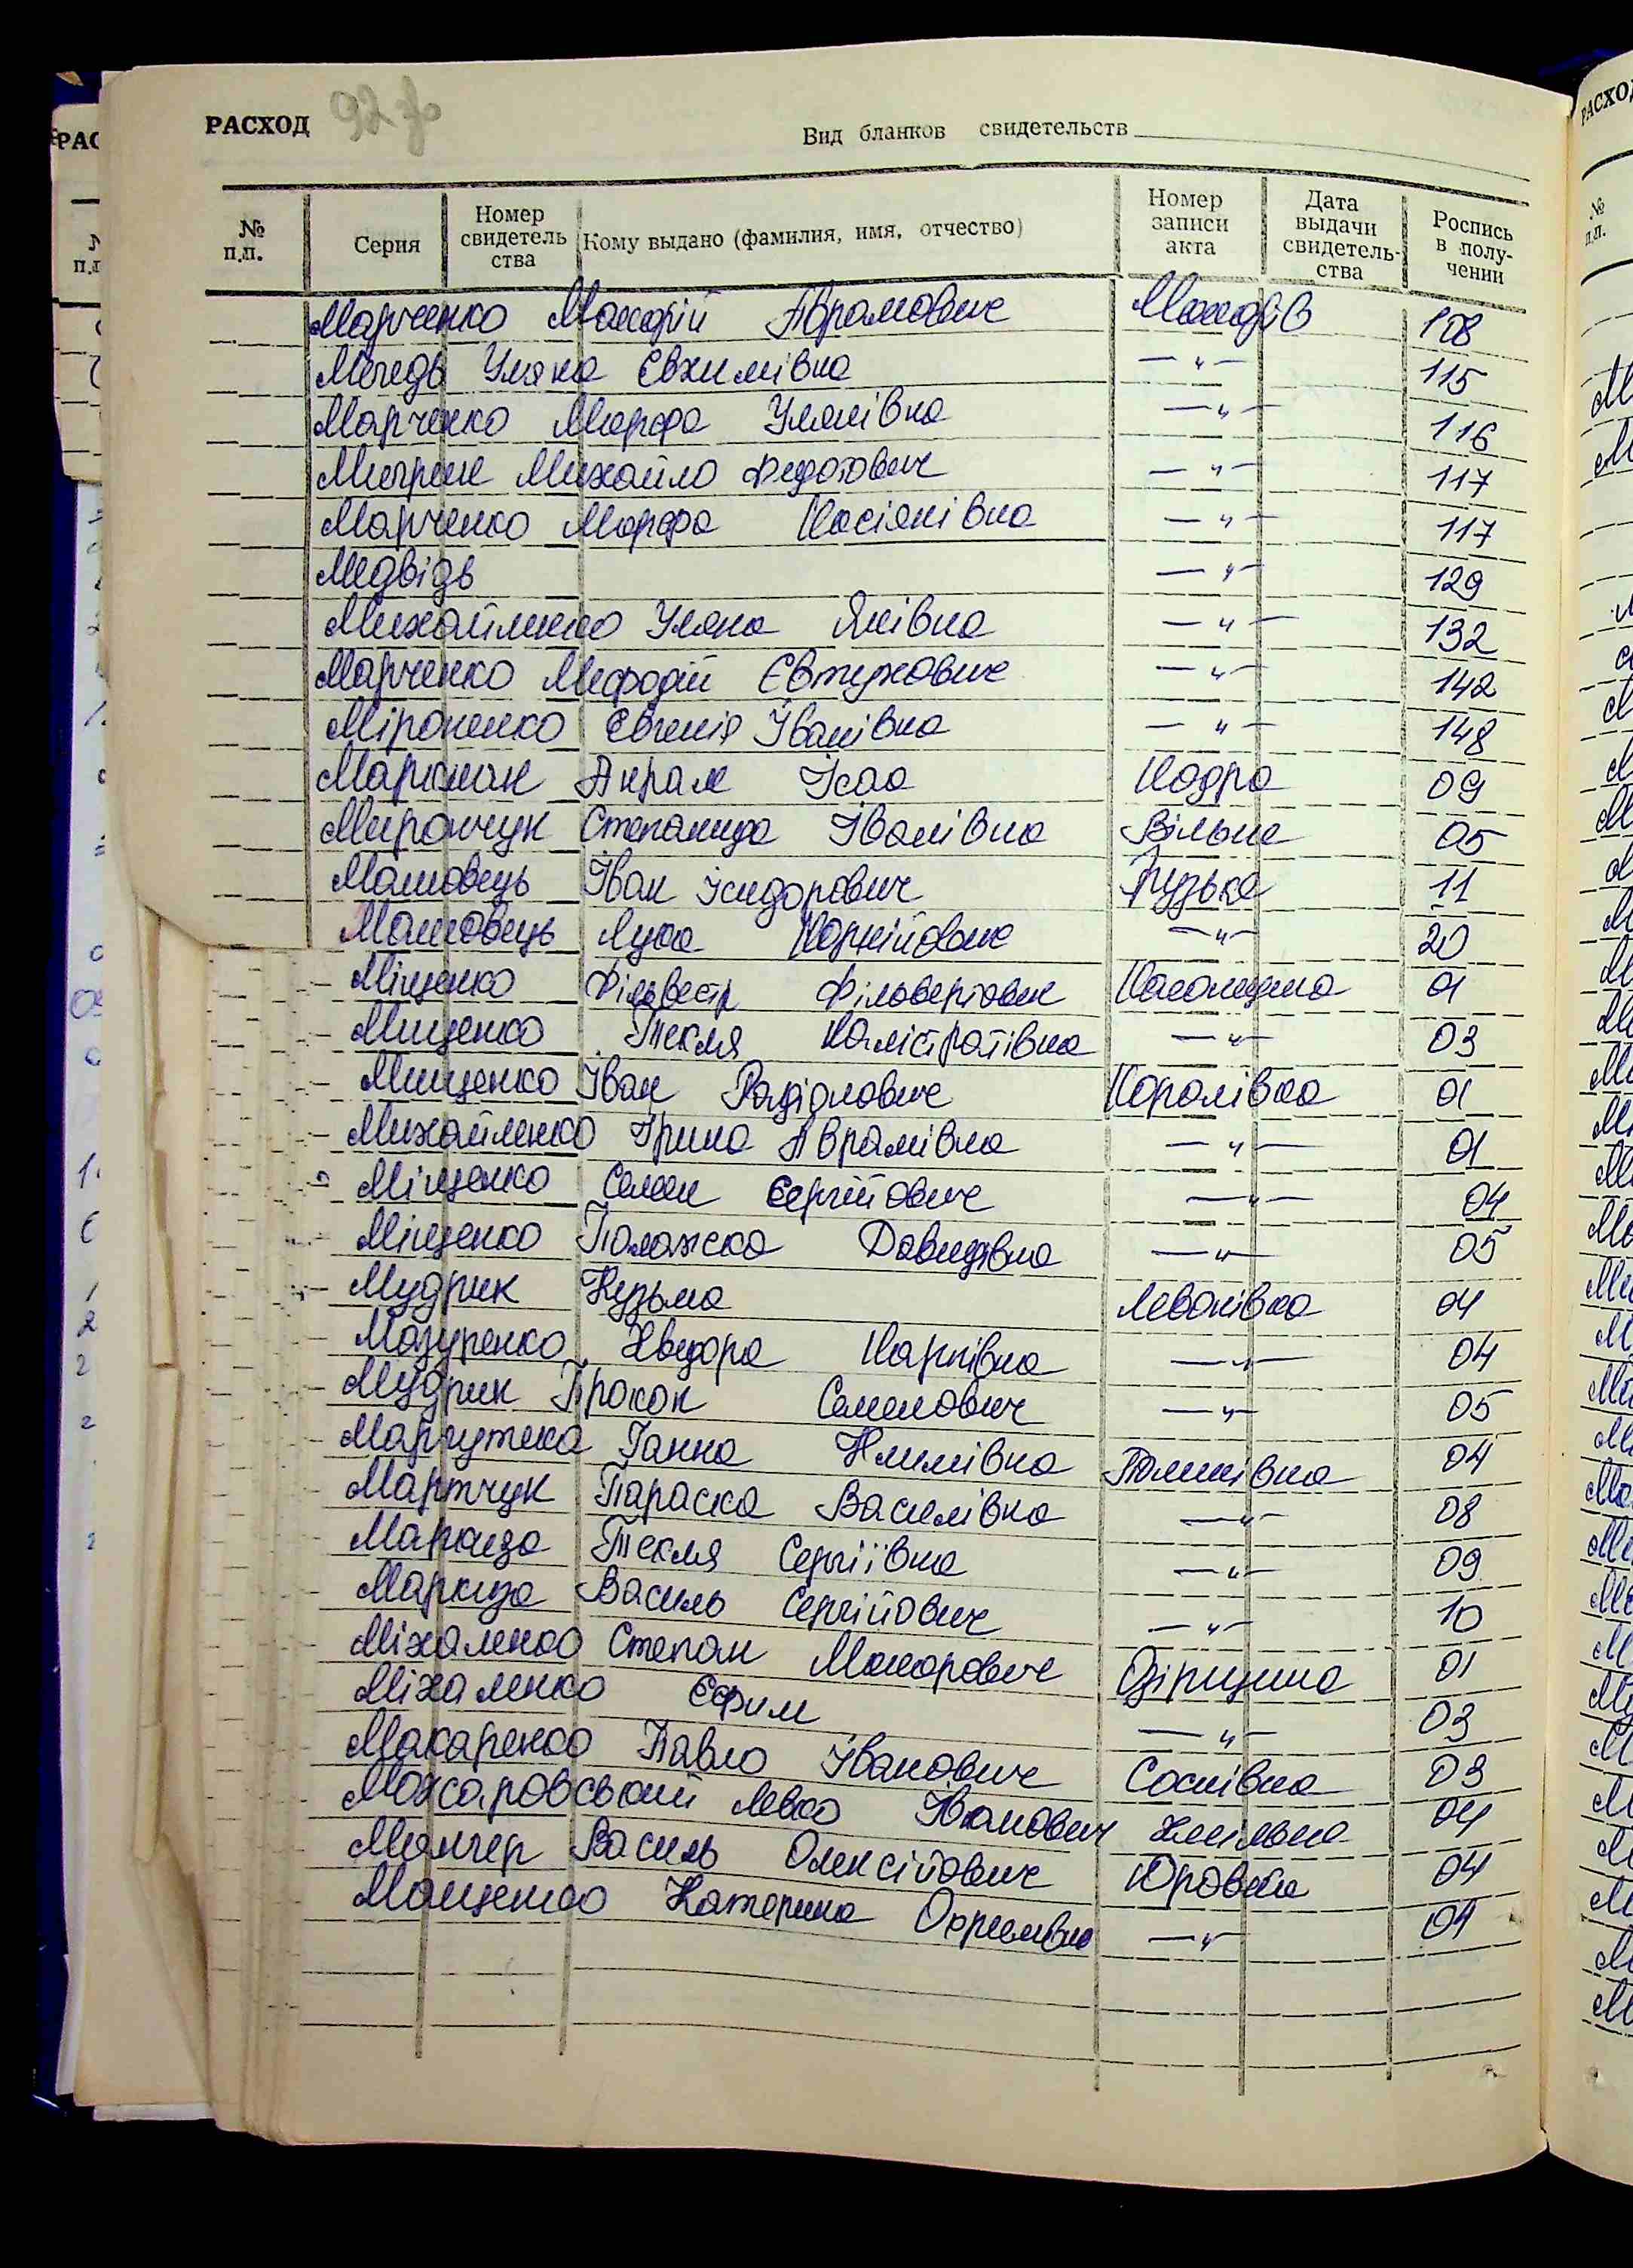 РАСХОД 92 зв
Вид бланков свидетельств
№ п.п. Серия Номер свидетель ства Кому выдано (фамилия, имя, отчество) Номер записи акта Дата выдачи свидетель- ства Роспись в полу- чении
Марченко Аврамович 108
Уляна Євхимівна —"— 115
Марченко Марфа —"— 116
Михайло Федотович —"— 117
Марченко Марфа Касіянівна —"— 117
Медвідь —"— 129
Михайленко Уляна Яківна —"— 132
Марченко Мефодій Євтухович —"— 142
Міроненко Євгенія Іванівна —"— 148
Акрам Ісаа Кодра 09
Мирончук Степанида Іванівна Вільне 05
Машовець Іван Ісидорович Рузька 11
Машовець Лука Корнійович —"— 20
Міщенко Фільвестр 01
Мищенко Текля Калістратівна —"— 03
Мищенко Іван Королівка 01
Михайленко Ірина Аврамівна —"— 01
Міщенко Семен Сергійович —"— 04
Міщенко Палажка Давидівна —"— 05
Мудрик Кузьма Леванівка 04
Мазуренко Хведора Карпівна —"— 04
Мудрик Прокоп Семенович —"— 05
Ганна Климівна 04
Мартчук Параска Василівна —"— 08
Маркиза Текля Сергіївна —"— 09
Маркиза Василь Сергійович —"— 10
Міхаленко Степан Макарович Озірщина 01
Міхаленко Єфим —"— 03
Макаренко Павло Іванович Соснівка 03
Можаровський Левко Іванович Хмільна 04
Василь Олексійович Юровка 04
Мащенко Катерина —"— 04
РАСХОД
№ п.п.